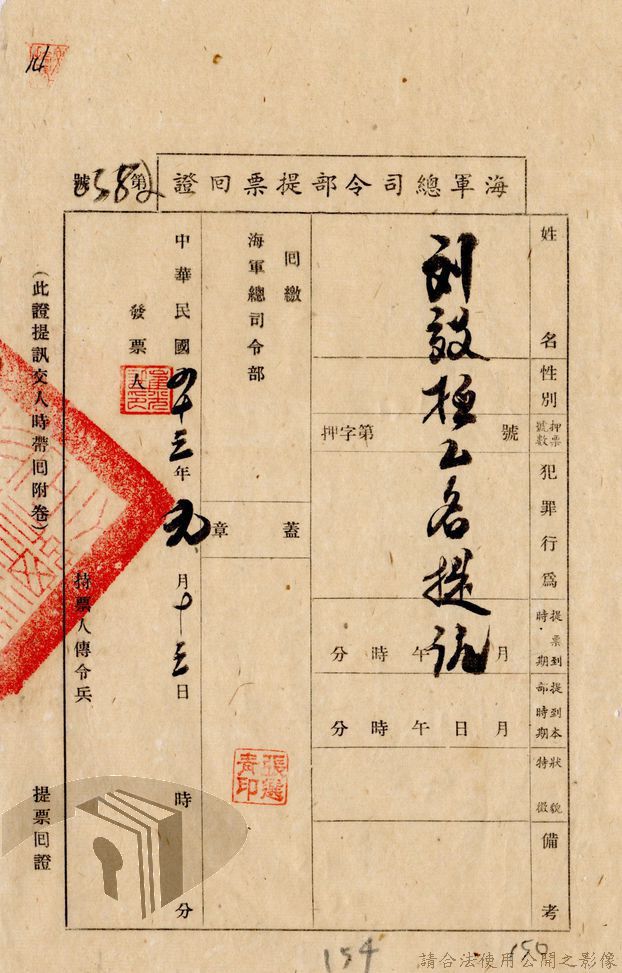 海軍總司令部提票回證
第0582號
姓名
性別
押票號數
犯罪行為
提票到時期
提到本部時期
特徵狀貌
備考
劉
提訊
押字第 號
月 午 時 分
月 日 午 時 分
回繳
海軍總司令部
蓋章
張
青印
中華民國四十三年九月十三日 時 分
發票人
持票人傳令兵
(此證提訊交人時帶回附卷)
提票回證
154
150
請合法使用公開之影像